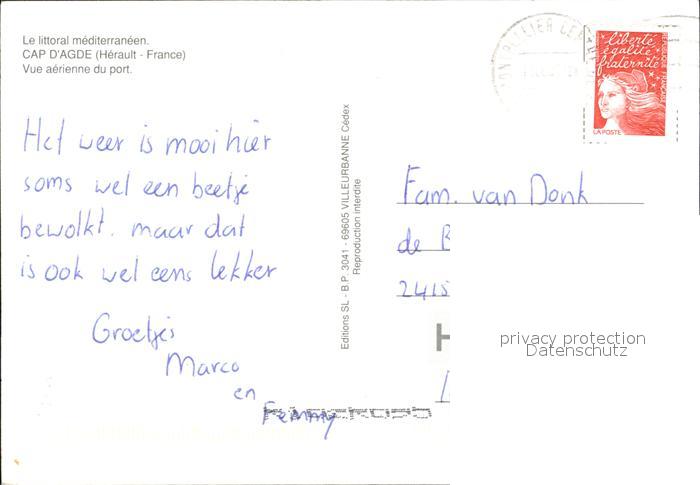 Le littoral méditerranéen.
CAP D'AGDE (Hérault - France)
Vue aérienne du port.
liberté
égalité
fraternité
LA POSTE
Het weer is mooi hier
soms wel een beetje
bewolkt. maar dat
is ook wel eens lekker
Groetjes
Marco
en
Femmy
Editions SL - B.P. 3041 - 69605 VILLEURBANNE Cédex
Reproduction interdite
Fam. van Donk
de B
2415
H
privacy protection
Datenschutz